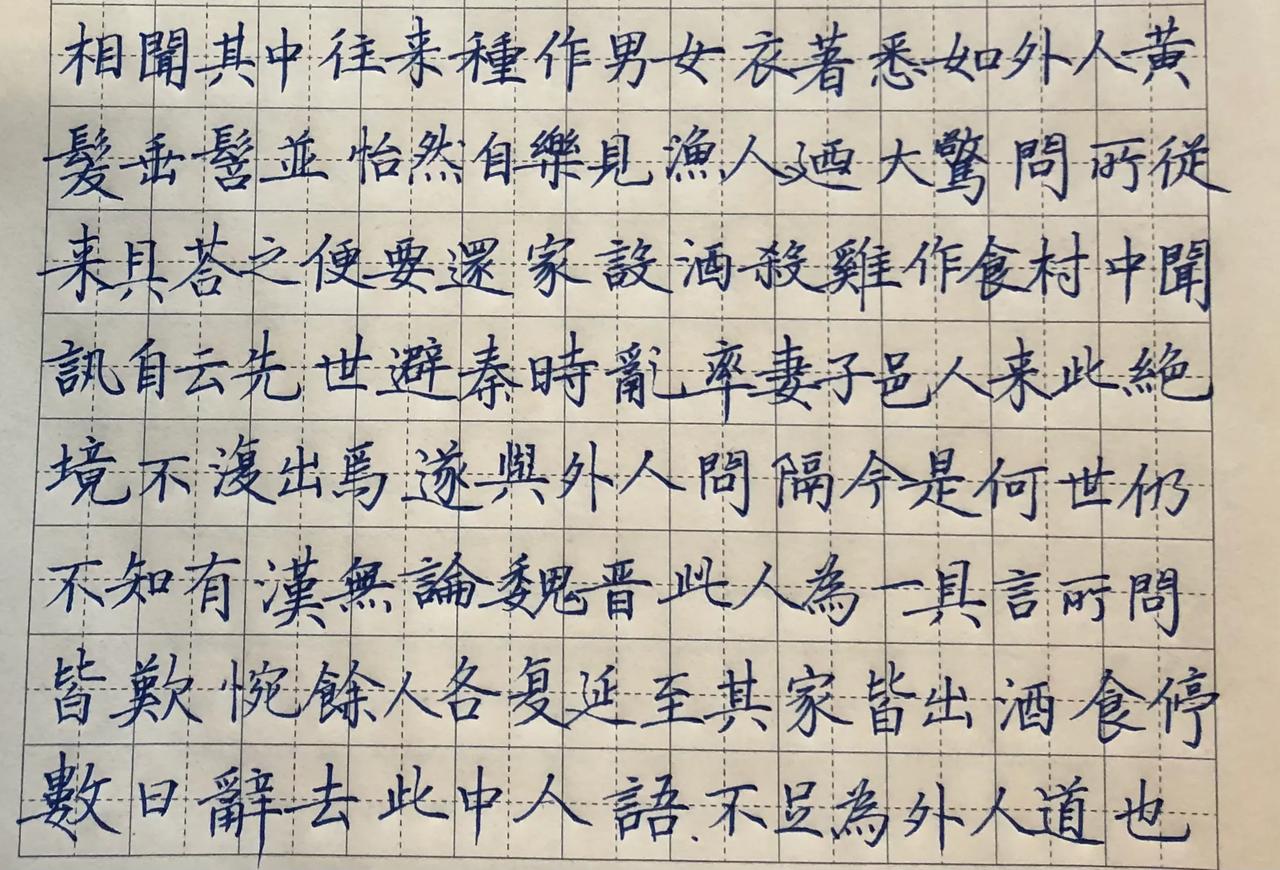 相聞其中往来種作男女衣著悉如外人黄
髮垂髫並怡然自樂見漁人廼大驚問所從
来具荅之便要還家設酒殺雞作食村中聞
訊自云先世避秦時亂率妻子邑人来此絶
境不澓出焉遂與外人問隔今是何世仍
不知有漢無論魏晋此人為一具言所問
皆歎惋餘人各复延至其家皆出酒食停
數日辭去此中人語不足為外人道也